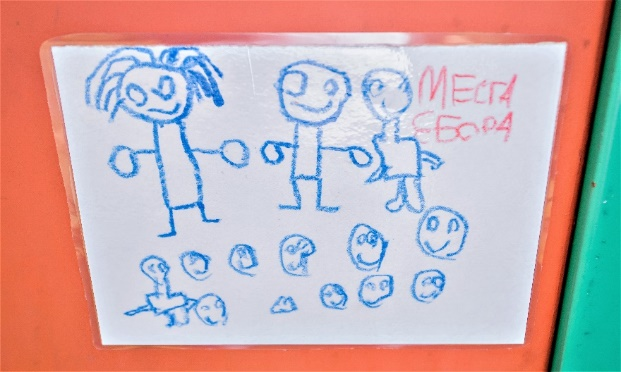 МЕСТА
СБОРА